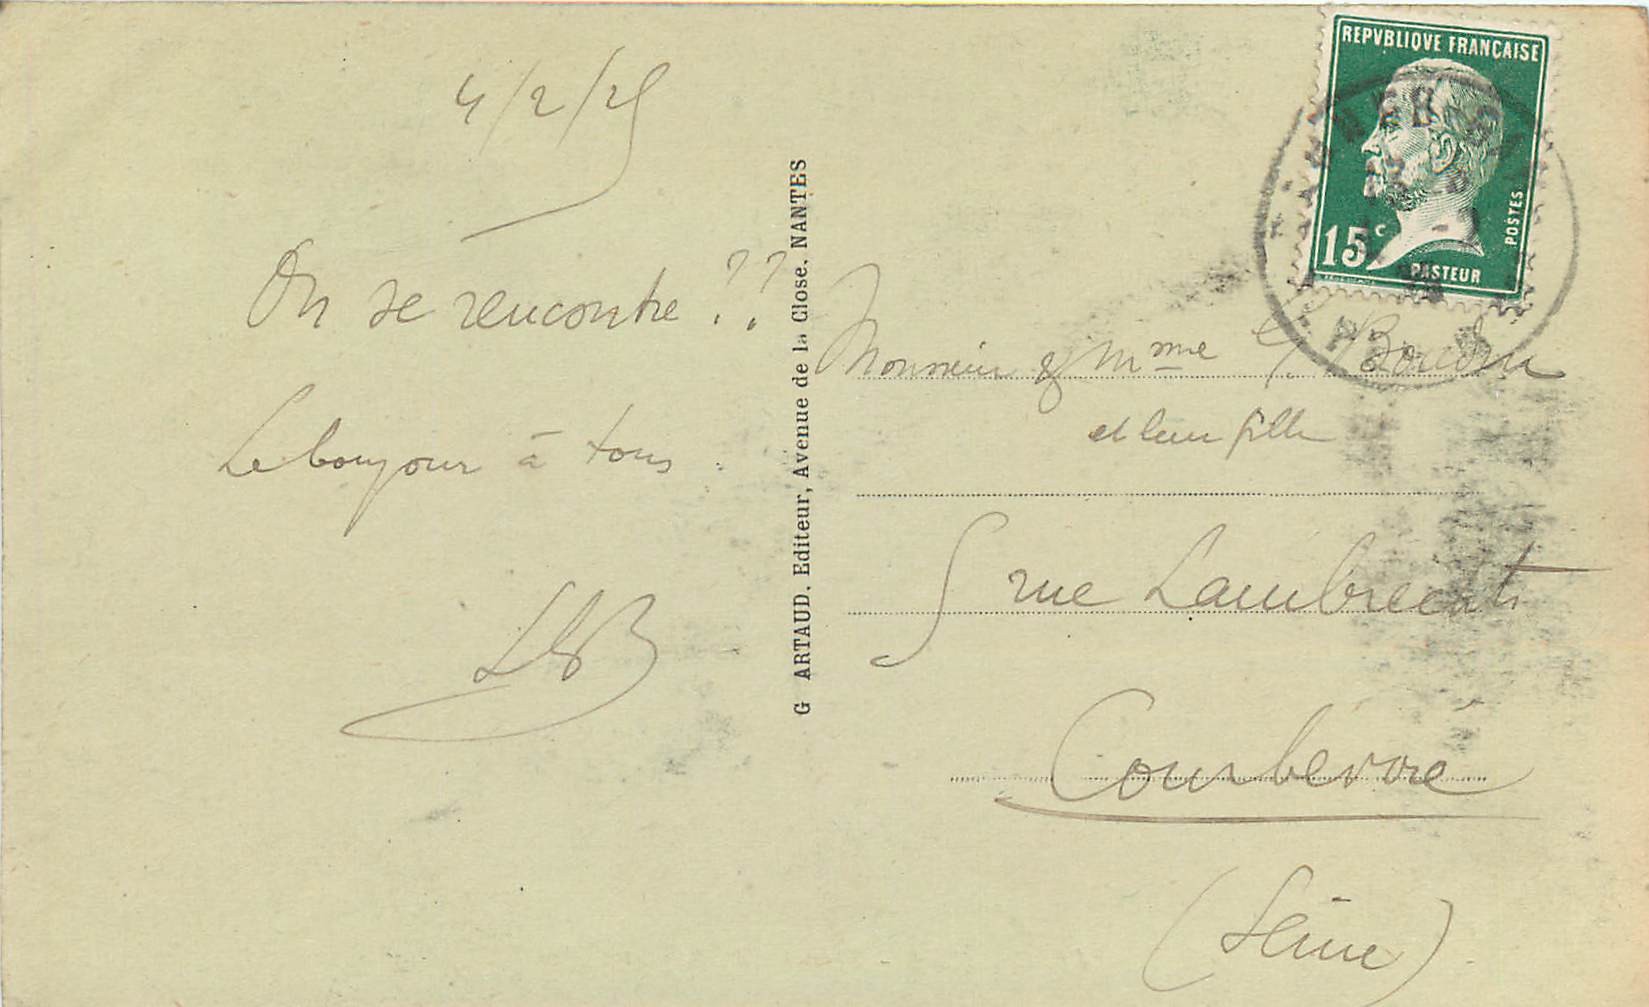 4/2/25
On se rencontre !??
Le bonjour à tous.
LLB
G ARTAUD. Editeur, Avenue de la Close. NANTES
REPVBLIQVE FRANÇAISE
15c
POSTES
PASTEUR
Monsieur & Mme G. Boudin
et leur fille
5 rue Lambrechts
Courbevoie
(Seine)